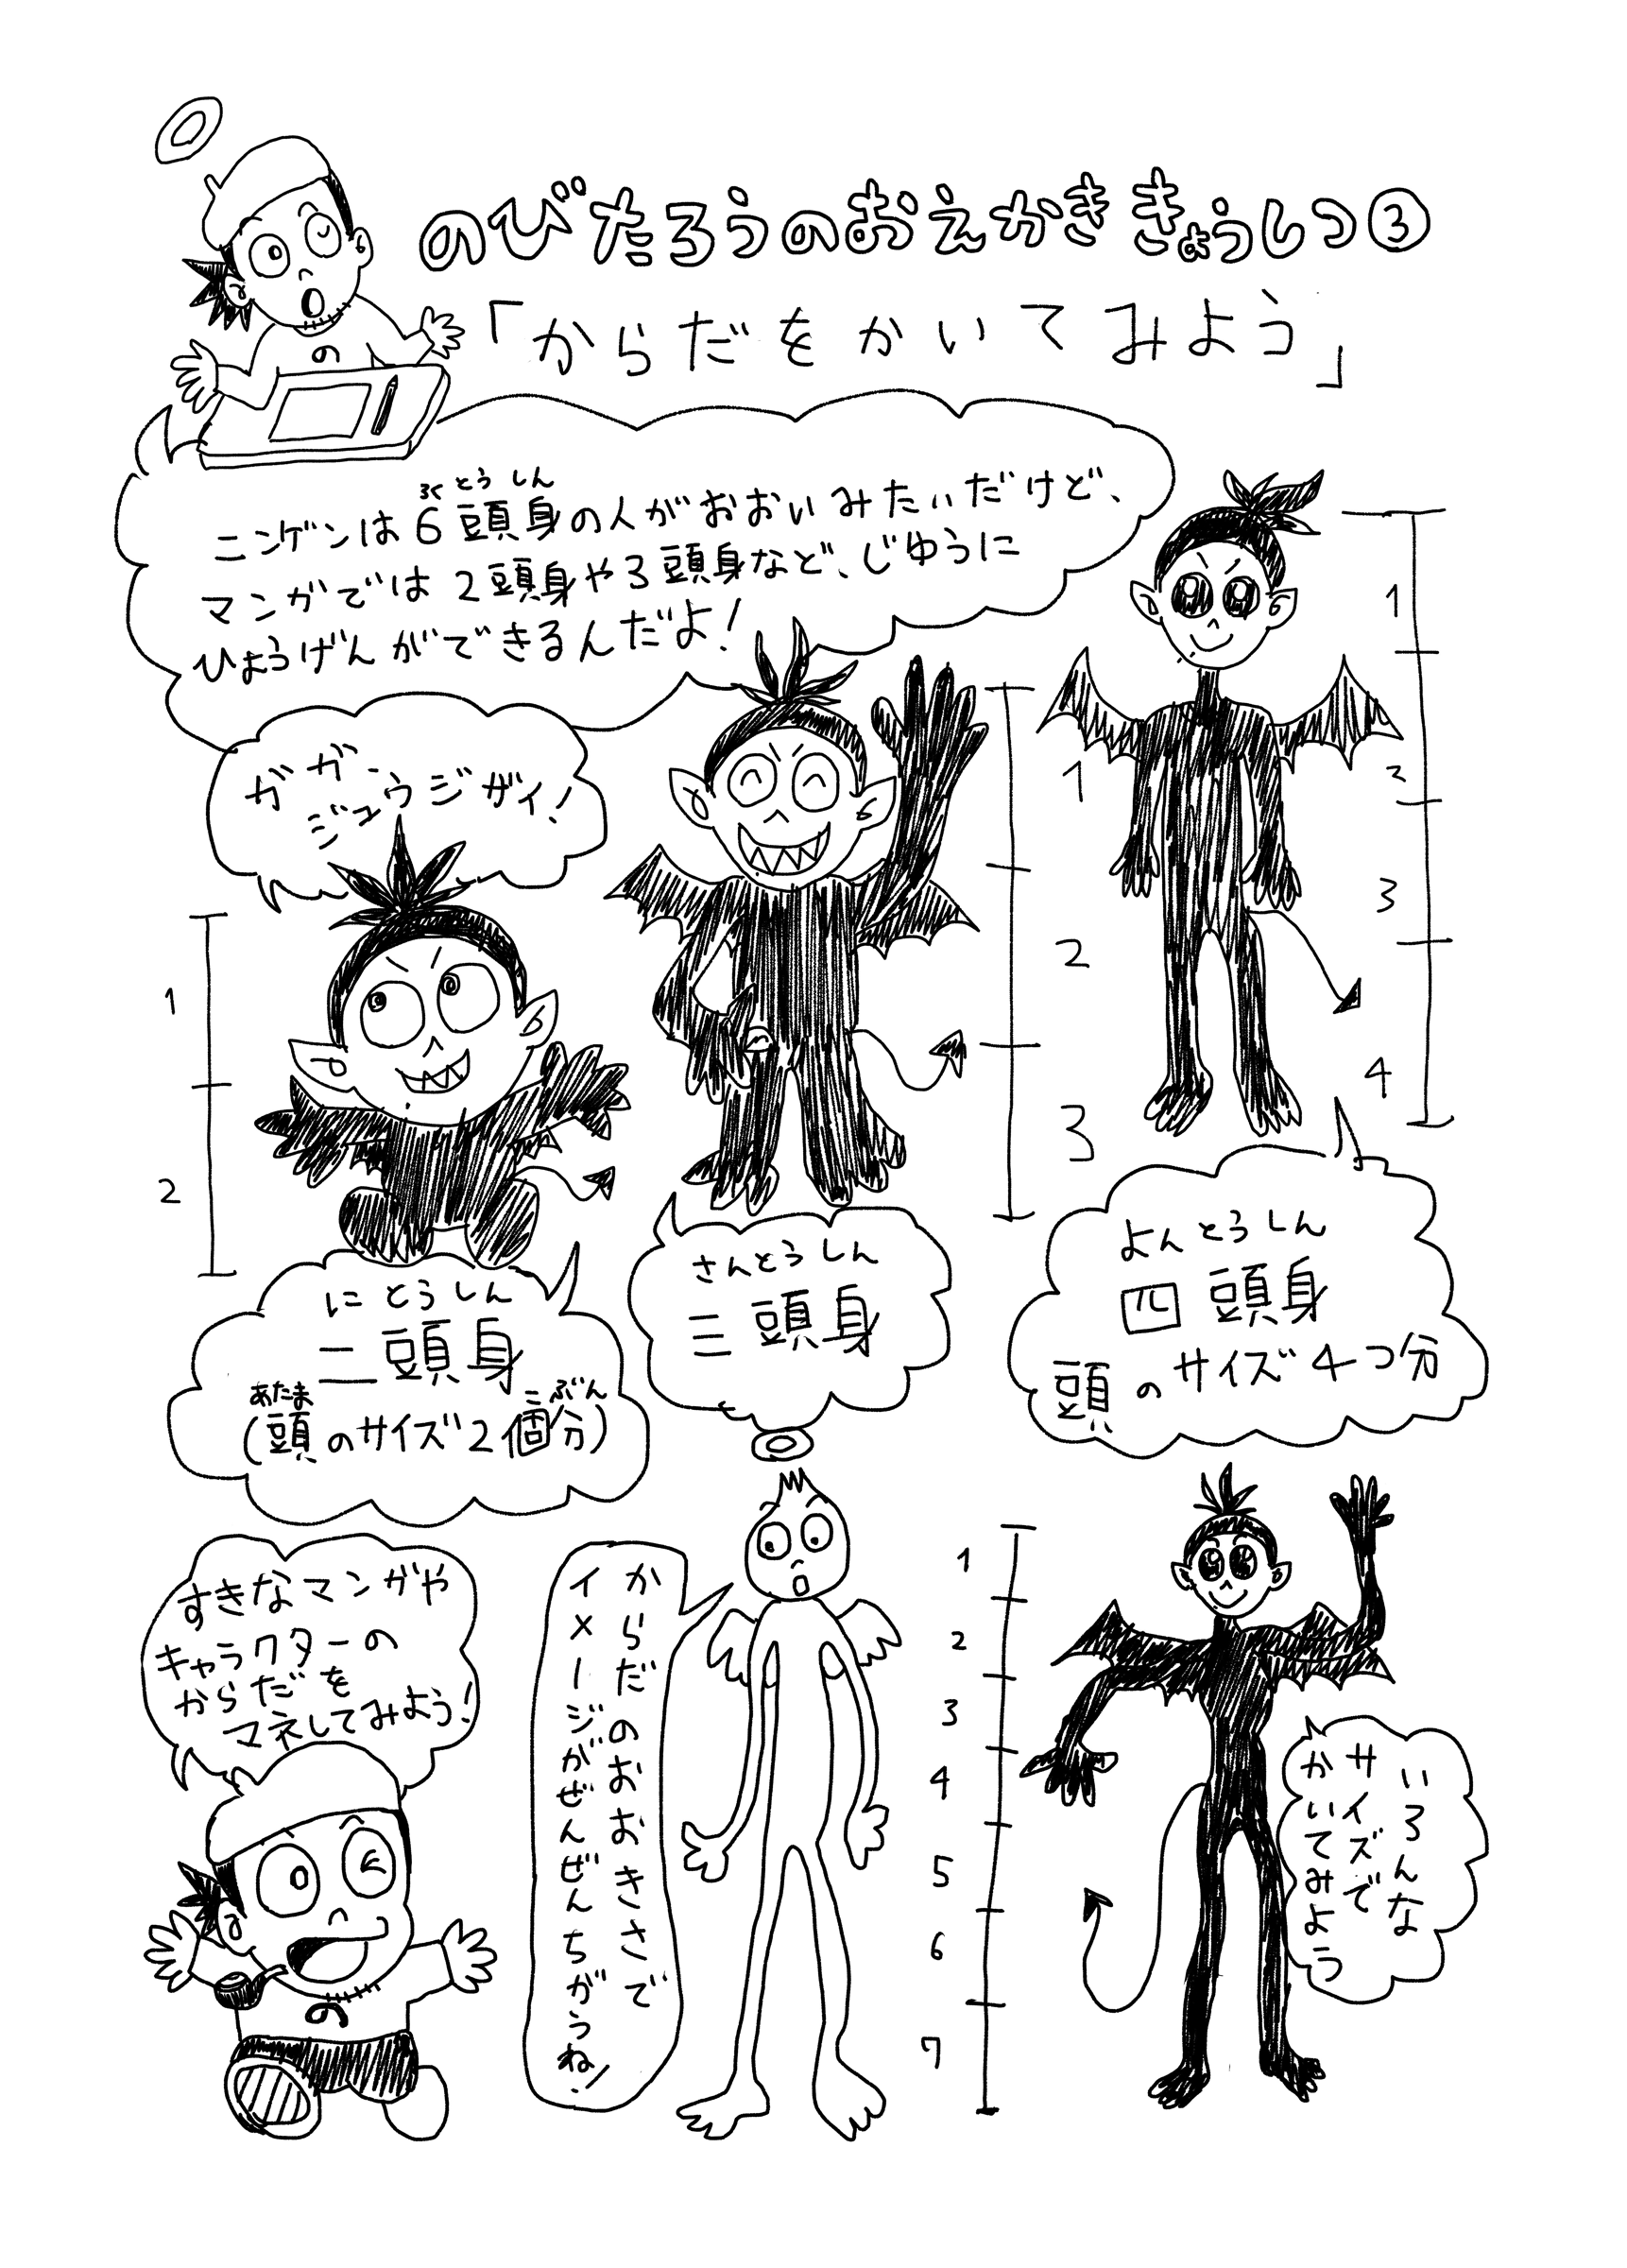 のびたろうのおえかききょうしつ③
「からだをかいてみよう」
の
ろくとうしん
ニンゲンは6頭身の人がおおいみたいだけど、
マンガでは2頭身や3頭身など、じゆうに
ひょうげんができるんだよ!
ガガ、
ジユウジザイ!
1
2
1
2
3
1
2
3
4
にとうしん
二頭身
あたま こぶん
(頭のサイズ2個分)
さんとうしん
三頭身
よんとうしん
四頭身
頭のサイズ4つ分
すきなマンガや
キャラクターの
からだを
マネしてみよう!
の
からだのおおきさで
イメージがぜんぜんちがうね!
1
2
3
4
5
6
7
いろんな
サイズで
かいてみよう